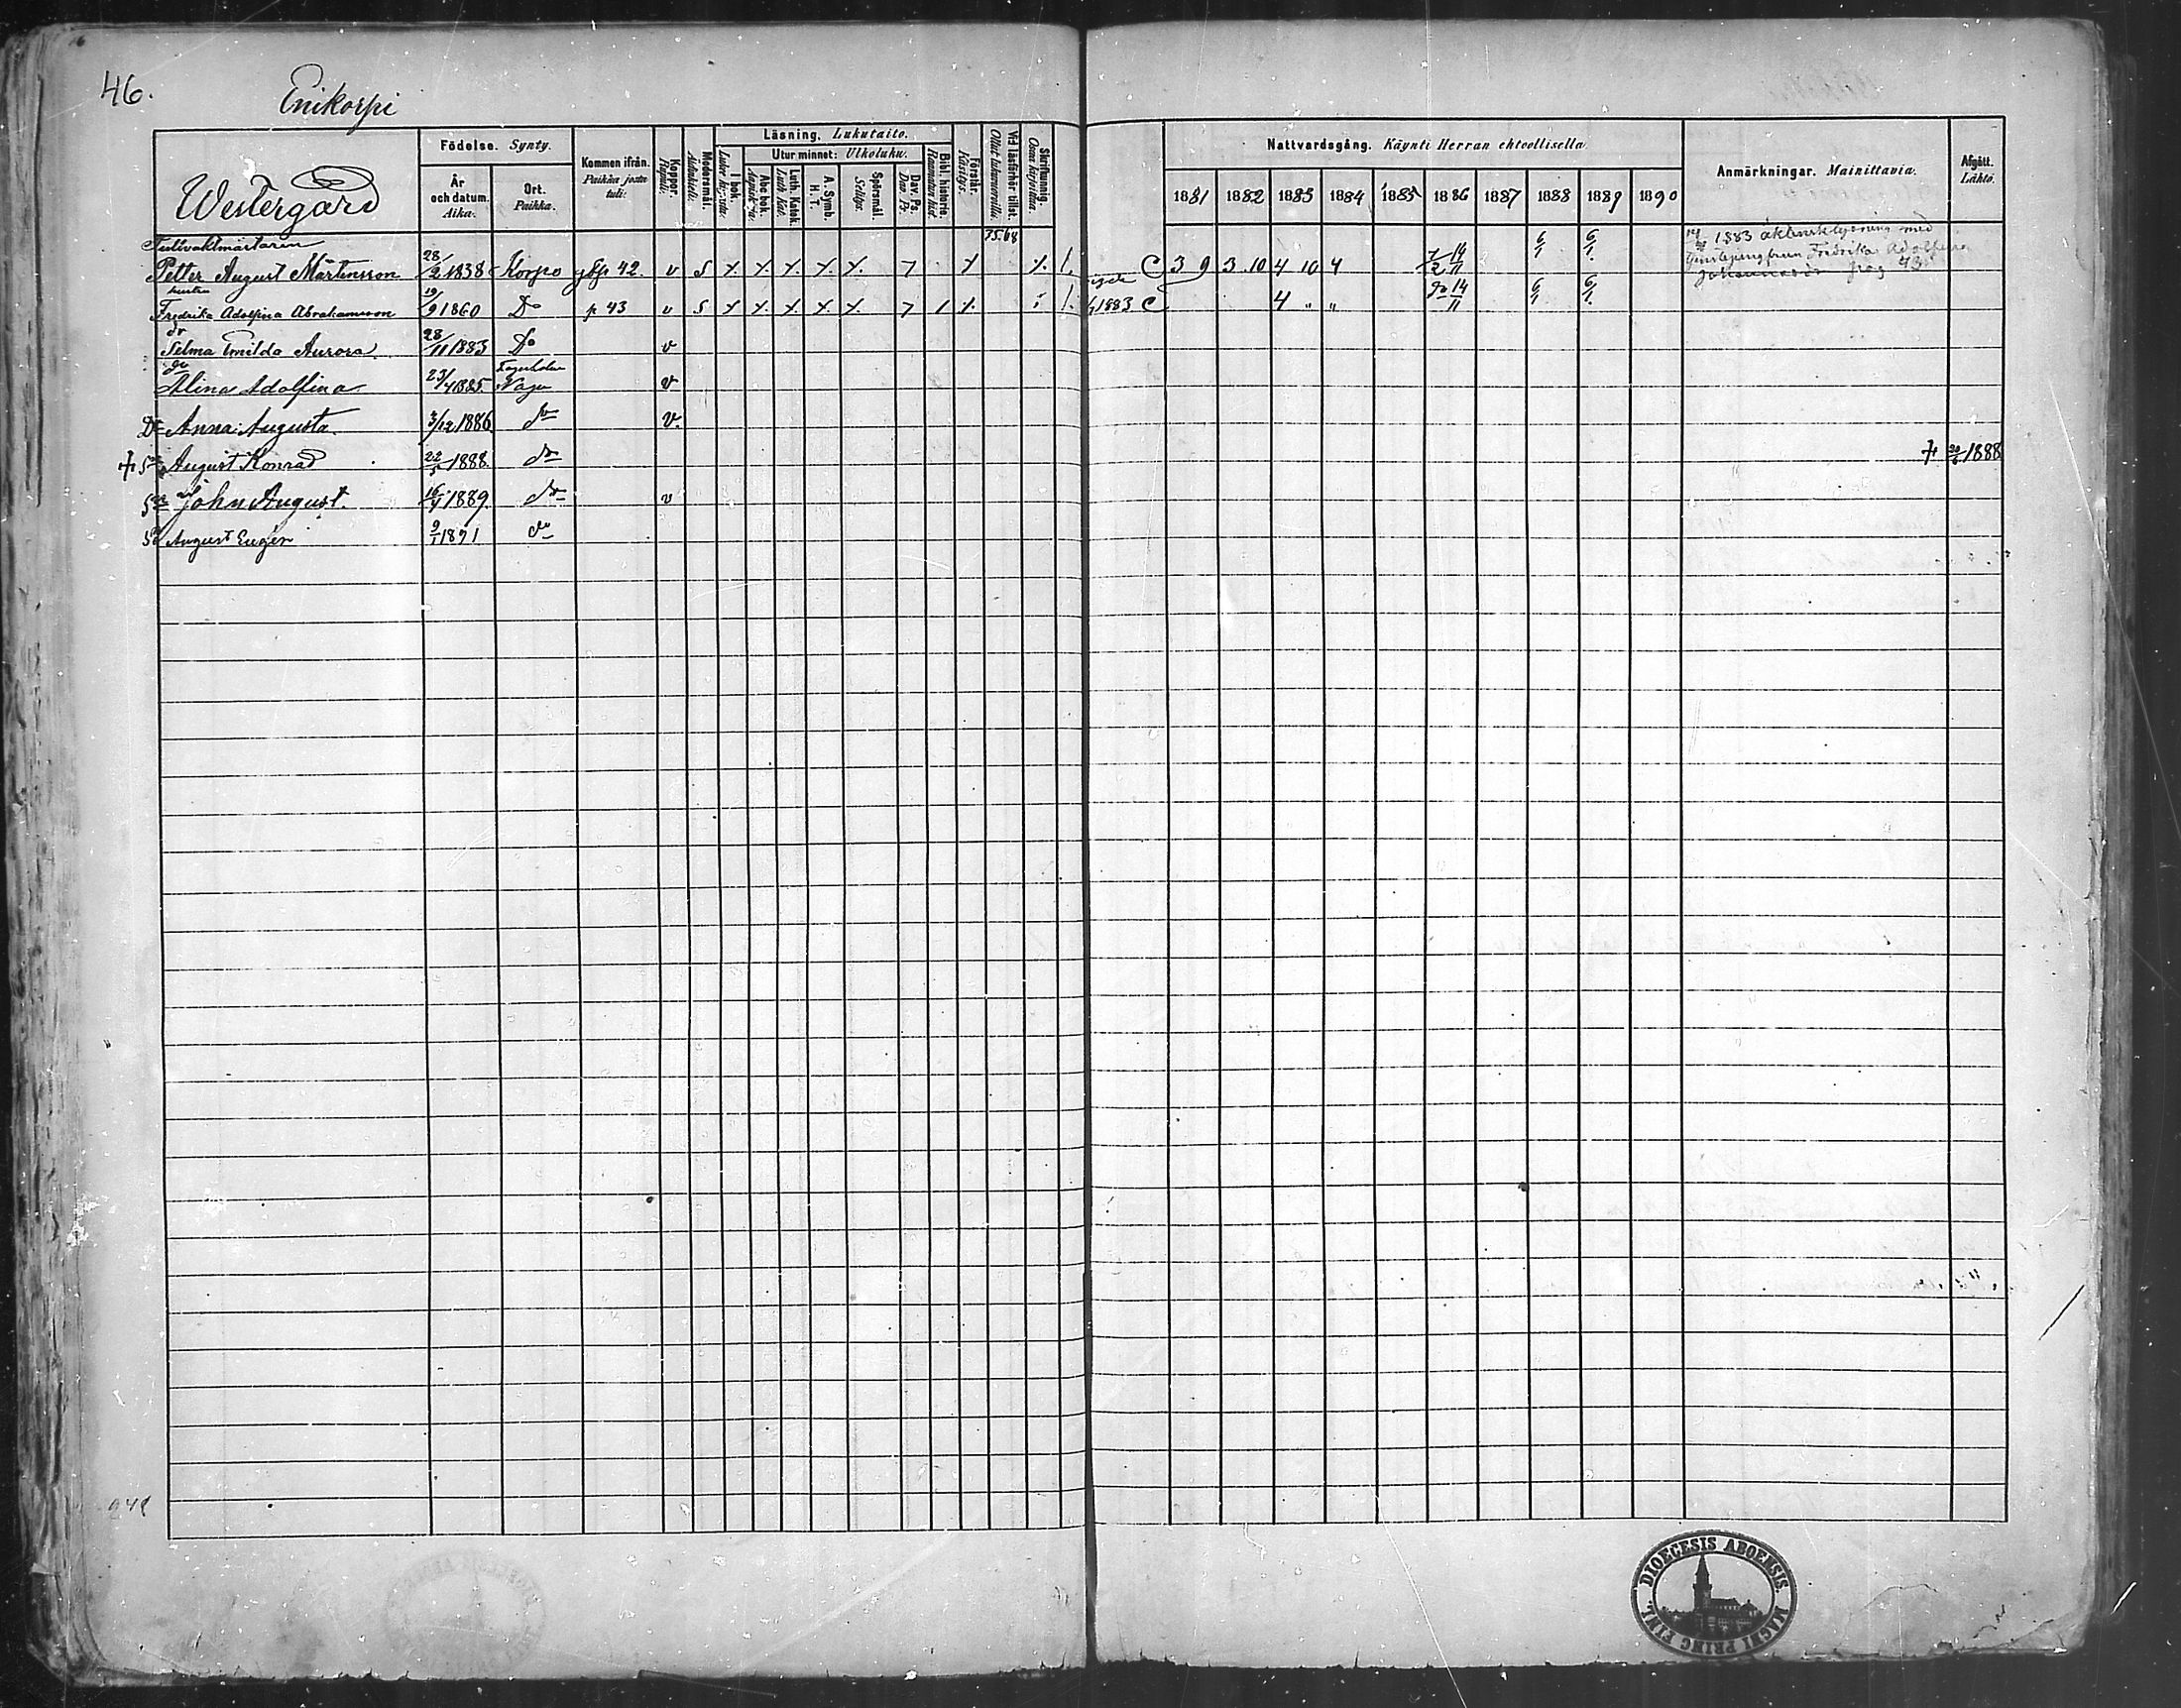 46.
Enikorpi
Westergård
Födelse. Synty.
År och datum. Aika.
Ort. Paikka.
Kommen ifrån. Paikka josta tuli:
Koppor. Rupuli.
Modersmål. Äidinkieli:
Läsning. Lukutaito.
I bok.
Utur minnet: Ulkoluku.
Abc bok.
Luth. Katek. Luth. Kat.
A. Symb. H. T.
Spörsmål Selitys.
Dav. Ps. Dav. Ps.
Bibl. historia. Raamatun hist.
Förstår. Käsitys.
Vid läsförhör tillst. Ollut lukuvuorolla.
Skrifkunnig. Osaa kirjoittaa.
Nattvardsgång. Käynti Herran ehtoollisella.
1881 1882 1883 1884 1885 1886 1887 1888 1889 1890
Anmärkningar. Mainittavia.
Afgått. Lähtö.
Tullvaktmästaren 35.68
Petter August Mårtensson 28/2 1838 Korpo 42. v S 7 C 3 9 3.10 4 10 4 7/2 14/11 6/1 6/1
1883 äktenskapslysning med
Fredrika Adolfina
Johannesdr pag 43
hustru
Fredrika Adolfina Abrahamsson 19/9 1860 Do p 43 v S 7 1 1883 C 4 " " 14/11 6/1 6/1
dr
Selma Emilda Aurora 28/11 1883 Do v
dr
Alina Adolfina 23/4 1885 Nagu v
Dr Anna Augusta. 3/12 1886 do v.
† Sn August Konrad 22/5 1888. do † 20/6 1888
Sn John August. 16/4 1889. do v
Sn August Eugén 9/1 1891 do
248
DIOECESIS ABOENSIS. MAGNI PRINC FINL.